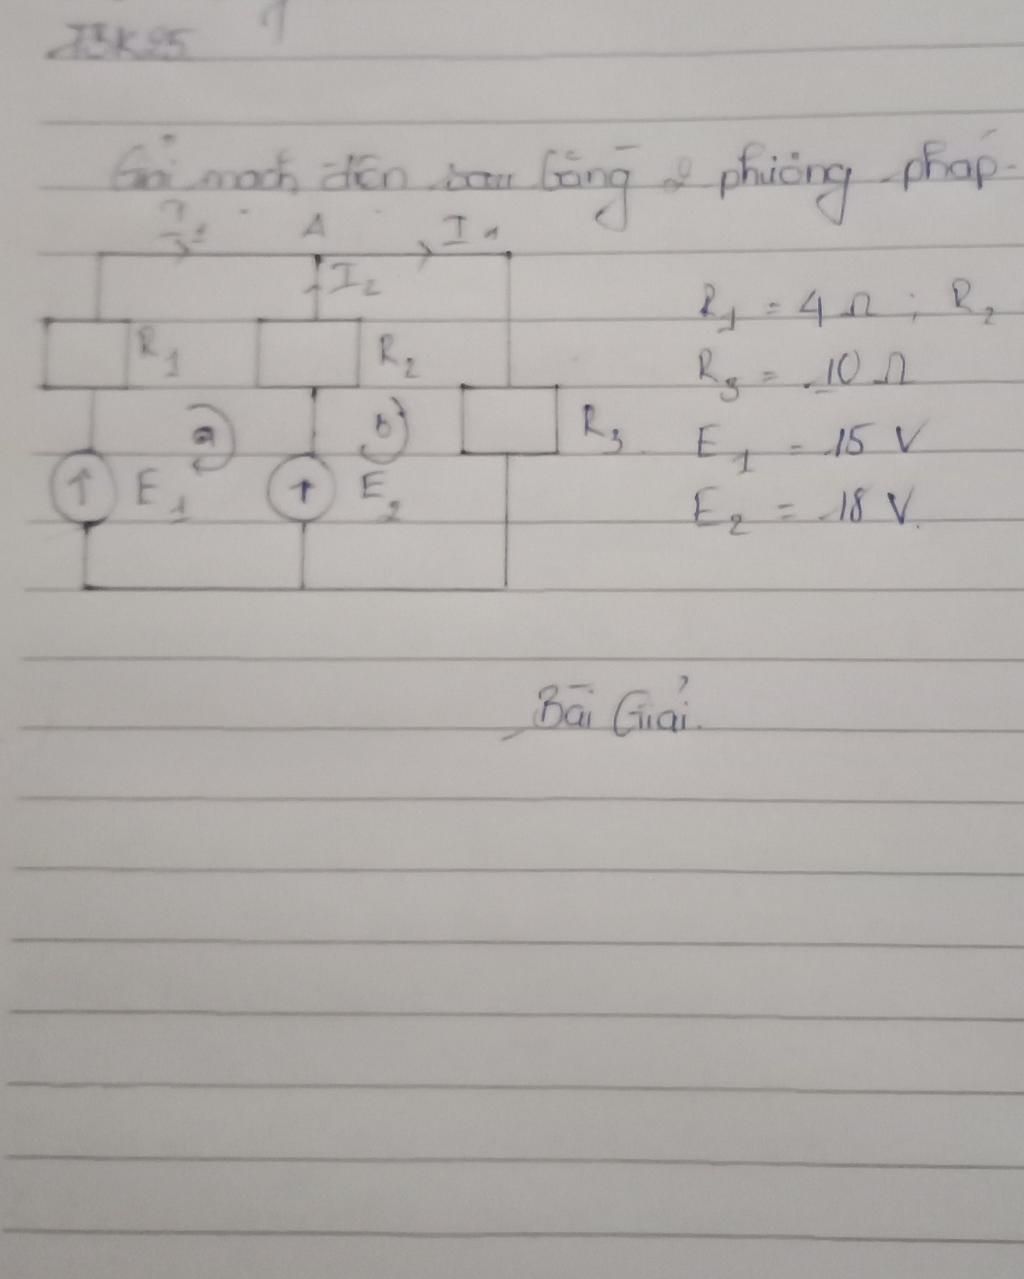 T3K25
Giải mạch điện sau bằng 2 phương pháp
I₁ A I₁
I₂
R₁ R₂ R₃
a b
E₁ E₂
R₁ = 4 Ω ; R₂
R₃ = 10 Ω
E₁ = 15 V
E₂ = 18 V.
Bài Giải.